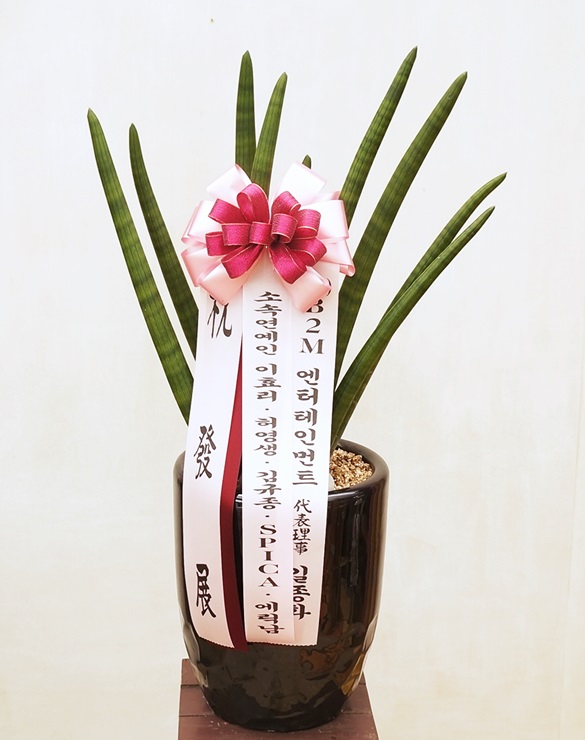 祝發展
소속연예인 이효리·허영생·김규종·SPICA·에릭남
B2M 엔터테인먼트 代表理事